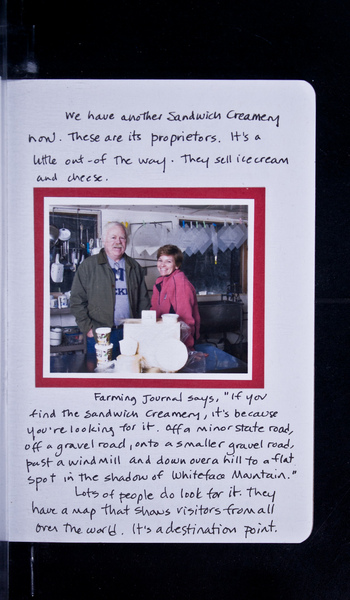 We have another Sandwich Creamery
now. These are its proprietors. It's a
little out-of the way. They sell icecream
and cheese.
Farming Journal says, "If you
find the Sandwich Creamery, it's because
you're looking for it. Off a minor state road,
off a gravel road, onto a smaller gravel road,
past a windmill and down over a hill to a flat
spot in the shadow of Whiteface Mountain."
Lots of people do look for it. They
have a map that shows visitors from all
over the world. It's a destination point.